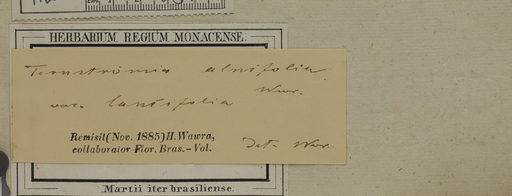 HERBARIUM REGIUM MONACENSE.
Ternströmia alnifolia
Wawr.
var. lancifolia
Remisit (Nov. 1885) H. Wawra,
collaborator Flor. Bras. – Vol.
Det. Wawr.
Martii iter brasiliense.